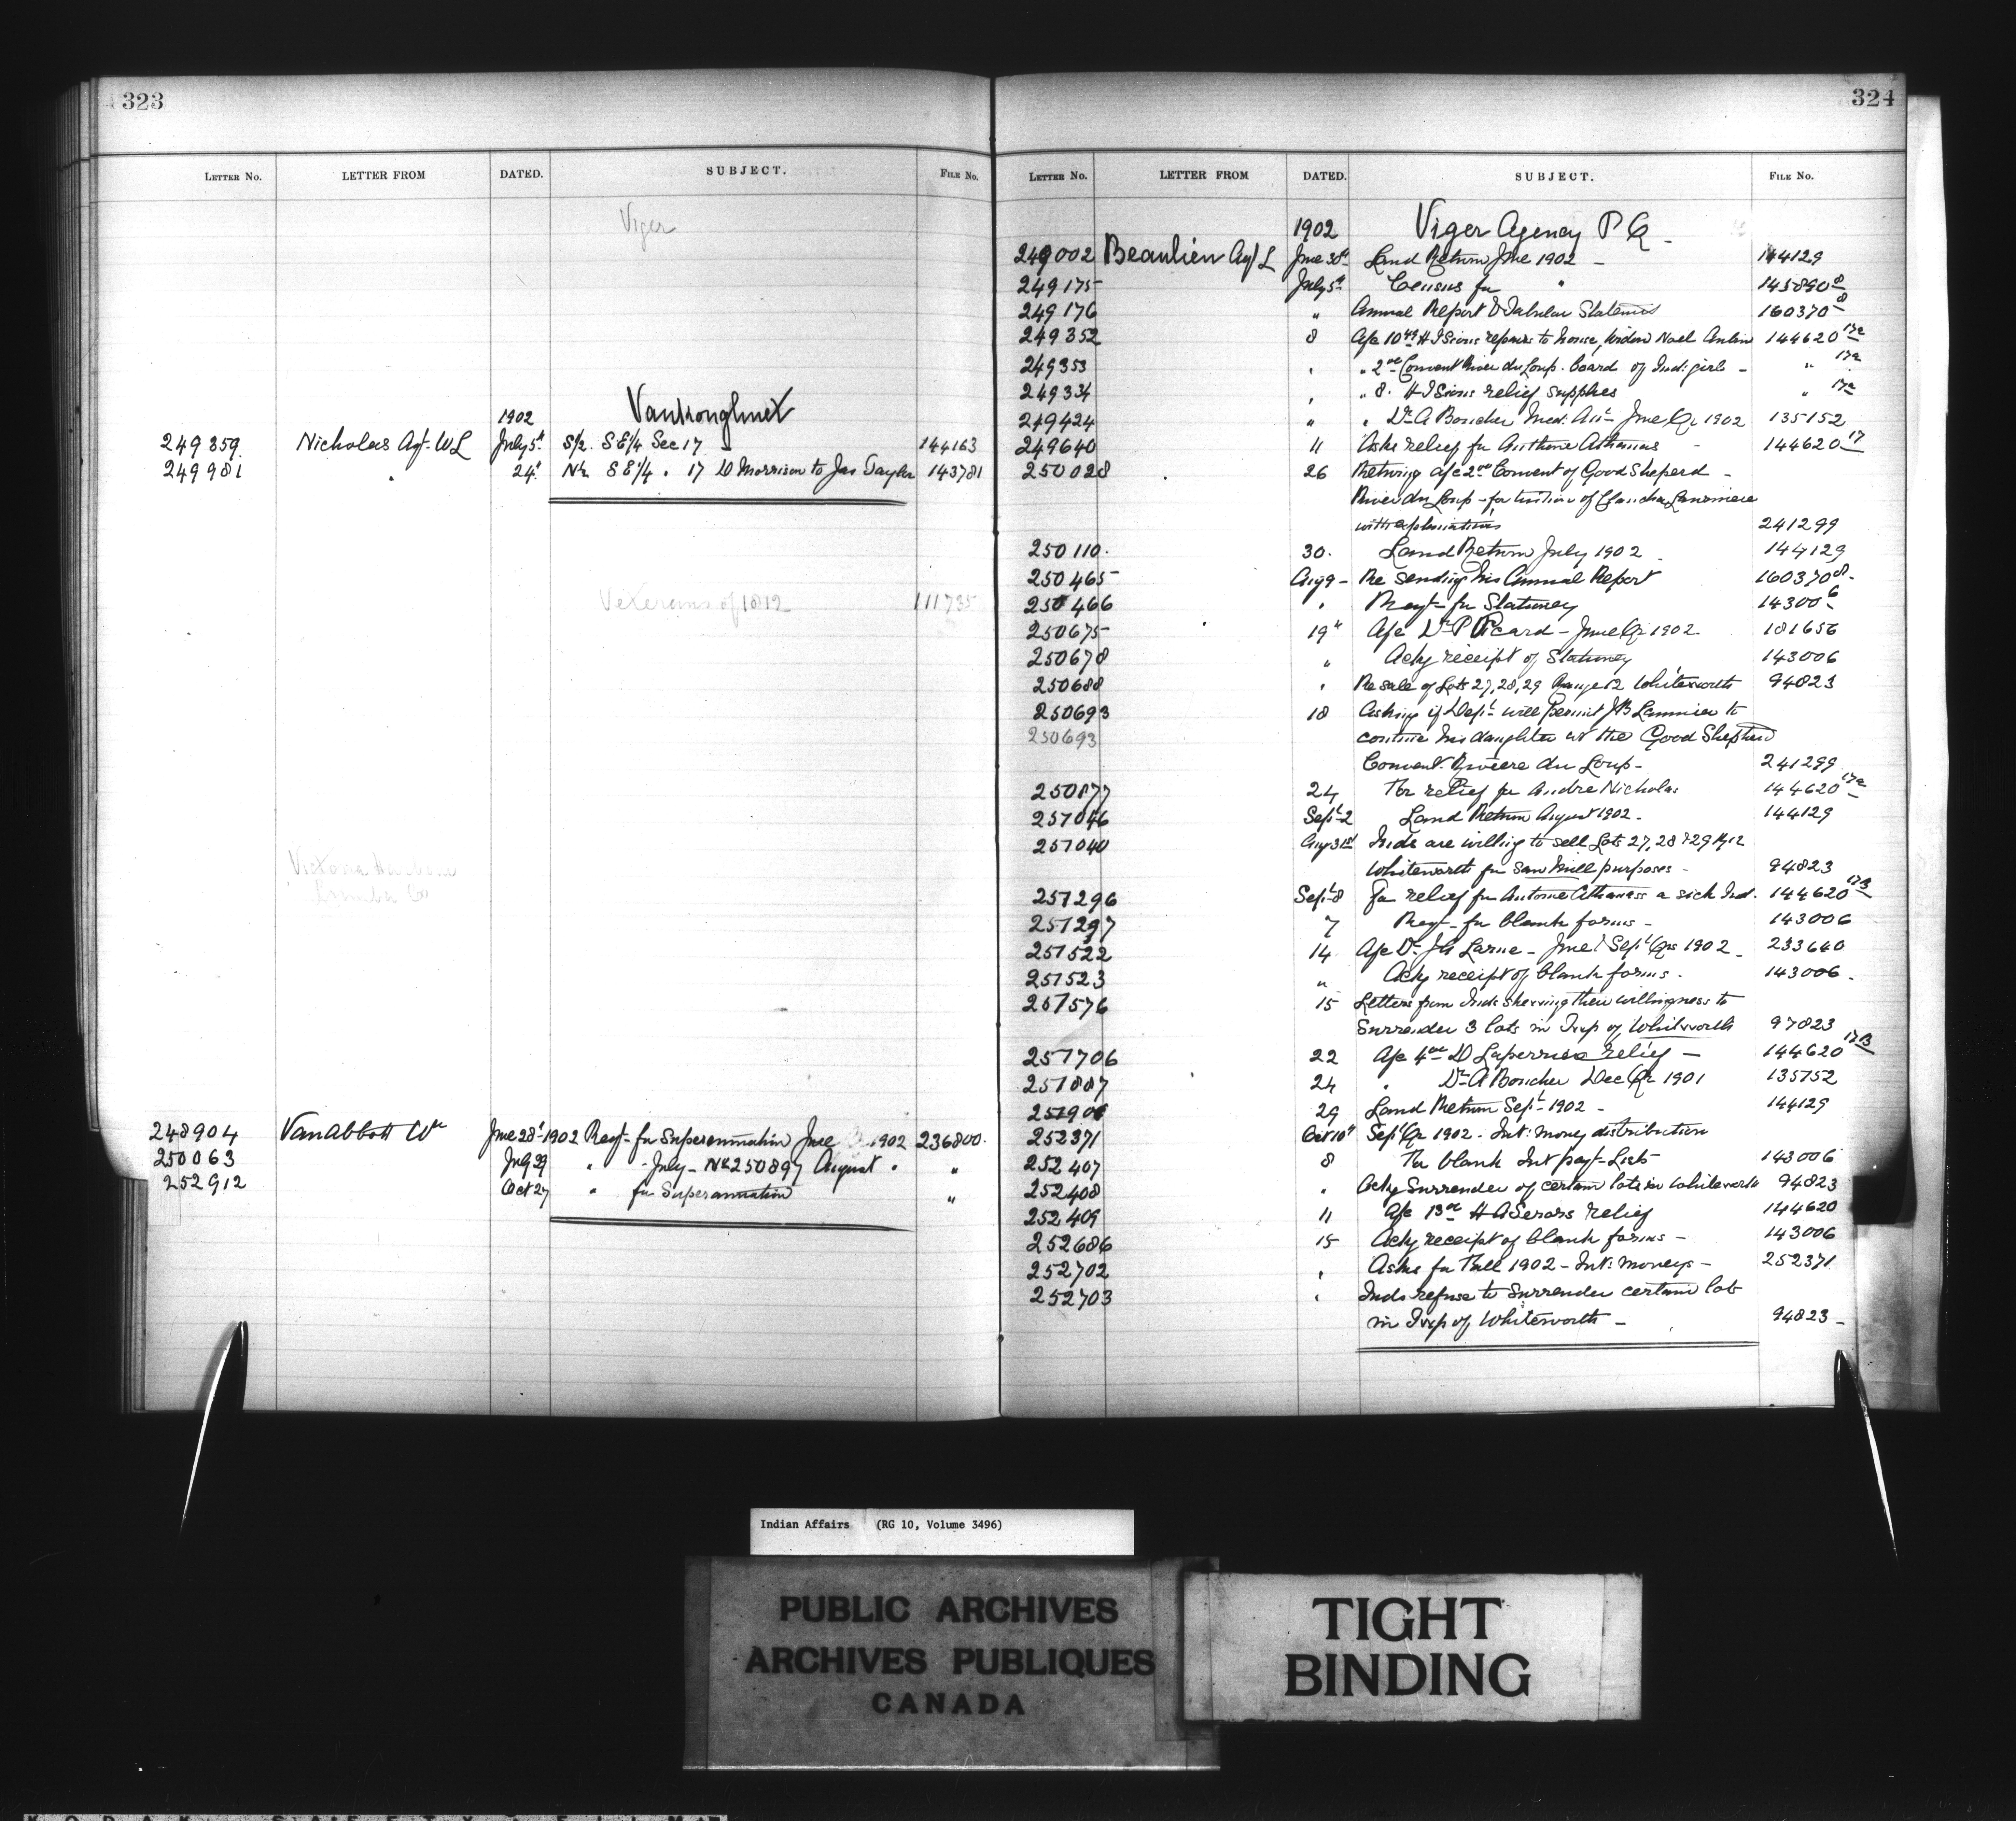 323
LETTER No. LETTER FROM DATED. SUBJECT. FILE No.
Viger
Vankoughnet
1902
249359 Nicholas Agt. W L July 5th S/2 S E1/4 Sec 17 144163
249981 " 24" N1/2 S E1/4 " 17 D Morrison to Jas Taylor 143781
Veterans of 1812 111735
Victoria Harbour
Lumber Co
248904 VanAbbott Wm June 28th 1902 Reqt- for Superannuation June Qr 1902 236800.
250063 July 29 " " July - No 250897 August " "
252912 Oct 27 " for Superannuation "
324
LETTER No. LETTER FROM DATED. SUBJECT. FILE No.
1902 Viger Agency P Q -
249002 Beaulieu Agt L June 30th Land Return June 1902 - 144129
249175 July 5th Census for " 145890-8
249176 " Annual Report & Tabular Statements 160370-8
249352 8 A/c 10.49 H J Sirois repairs to house, Widow Noel 144620 17a
249353 " " 2nd Convent River du Loup. board of Ind: girls - " 17a
249334 " " 8. H J Sirois relief supplies " 17a
249424 " " Dr A Boucher Med. Att: June Qr 1902 135152
249640 11 Asks relief for Anthony Athanas - 144620 17
250028 26 Returning a/c 2nd Convent of Good Sheperd -
River du Loup - for tuition of
with explanations 241299
250110. 30. Land Return July 1902 144129
250465 Aug 9 - Re sending his Annual Report 160370 8-
250466 " Reqt- for Stationery 143006
250675 19" A/c Dr P Picard - June Qr 1902. 181656
250678 " Ackg receipt of Stationery 143006
250688 " Re sale of Lots 27, 28, 29 Range 12 Whiteworth 94823
250693 18 Asking if Dept will permit J B Launier to
250693 continue his daughter at the Good Shepherd
Convent. Riviere du Loup - 241299
250877 24 For relief for Andre Nicholas 144620 17a
251046 Sept 2 Land Return August 1902 - 144129
251040 Aug 31st Inds are willing to sell Lots 27, 28 & 29 Rg 12
Whiteworth for Saw Mill purposes - 94823
251296 Sept 8 For relief for Antoine Athanass a sick Ind. 144620 17B
251297 7 Reqt- for blank forms - 143006
251522 14 A/c Dr J Larue - June & Sept Qrs 1902 - 233640
251523 " Ackg receipt of blank forms - 143006 -
251576 15 Letters from Inds shewing their willingness to
Surrender 3 lots in Twp of Whitworth 97823
251706 22 A/c 4.00 D Laperriere relief - 144620 17B
251887 24 " Dr A Boucher Dec Qr 1901 135752
251906 29 Land Return Sept 1902 - 144129
252371 Oct 10th Sept Qr 1902. Int: Money distribution
252407 8 For blank Int payt- Lists 143006
252408 " Ackg Surrender of certain lots in Whiteworth 94823
252409 11 A/c 13.00 H A Serois relief 144620
252686 15 Ackg receipt of blank forms - 143006
252702 " Asks for Fall 1902 - Int: moneys - 252371
252703 " Inds refuse to Surrender certain lots
in Twp of Whiteworth - 94823 -
Indian Affairs (RG 10, Volume 3496)
PUBLIC ARCHIVES
ARCHIVES PUBLIQUES
CANADA
TIGHT
BINDING
KODAK SAFETY FILM